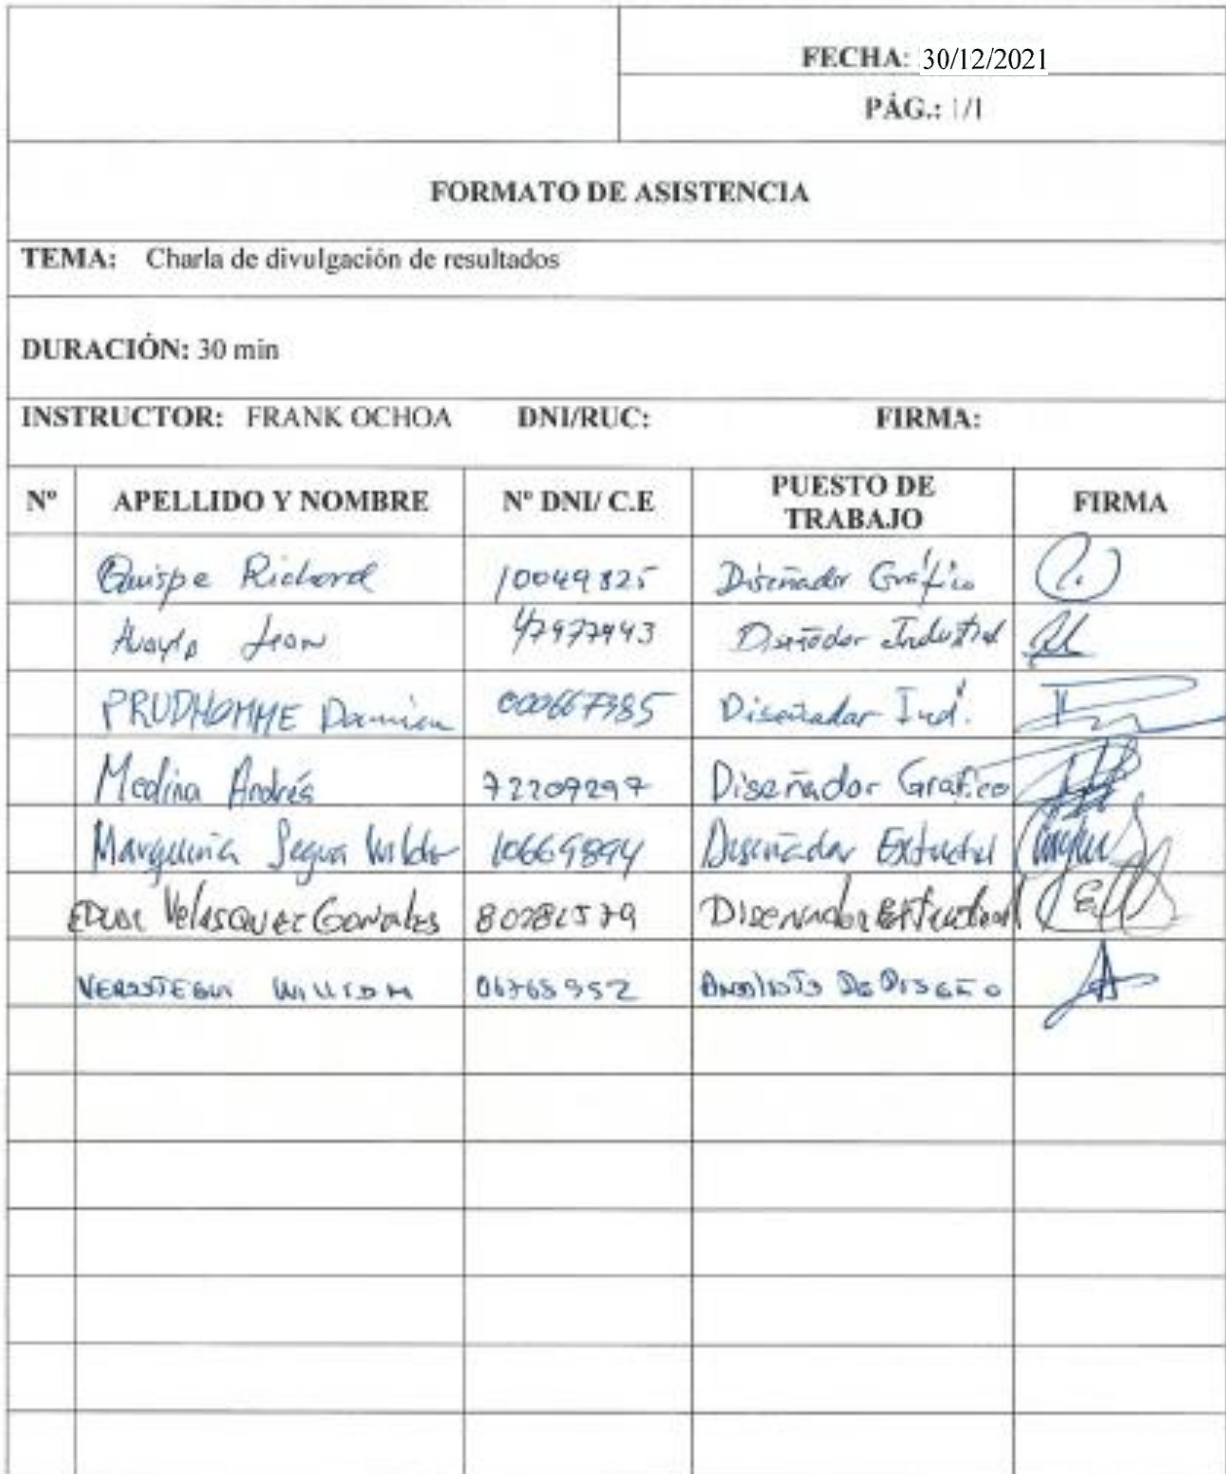 FECHA: 30/12/2021
PÁG.: 1/1
FORMATO DE ASISTENCIA
TEMA: Charla de divulgación de resultados
DURACIÓN: 30 min
INSTRUCTOR: FRANK OCHOA DNI/RUC: FIRMA:
Nº APELLIDO Y NOMBRE Nº DNI/ C.E PUESTO DE TRABAJO FIRMA
Quispe Richard 10049825 Diseñador Gráfico
Jean 47977943 Diseñador Industrial
PRUDHOMME Damien 000667385 Diseñador Ind.
Medina Andrés 72209297 Diseñador Grafico
10669894 Diseñador
Velasquez Gonzales Disenador
VERASTEGUI WILLIAM 06765952 Analista De Diseño